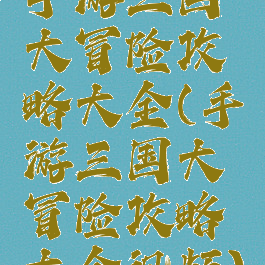 手游三国
大冒险攻
略大全(手
游三国大
冒险攻略
大全视频)